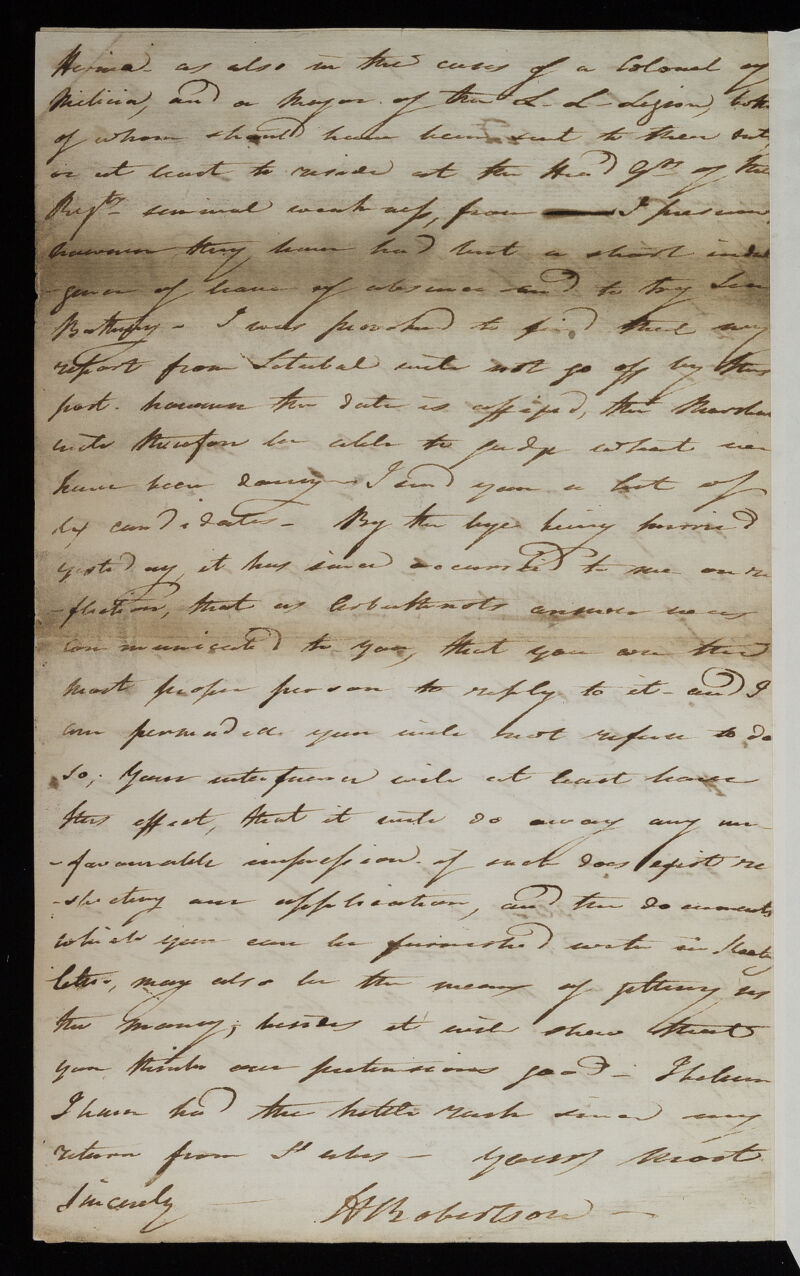 Hernia - as also in the cases of a Colonel of
Militia, and a Major of the L - L - Legion, both
of whom should have been sent to their
or at least to reside at the Head Qrs of the
Regts - seminal weakness, from I presume,
however they have had but a short indul
-gence of leave of absence and to try Sea
Bathing - I was provoked to find that my
report from Setubal will not go off by this
post - however the date is affixed, the Marshal
will therefore be able to judge what we
have been doing - I send you a list of
six candidates - By the bye being hurried
yesterday, it has since occurred to me on re
-flection, that as Arbuthnots answer was
communicated to you, that you are the
most proper person to reply to it - and I
am persuaded you will not refuse to do
so; Your interference will at least have
this effect, that it will do away any un-
-favourable impression if such does exist re
-specting our application, and the documents
which you can be furnished with in
letter, may also be the means of getting us
the money; besides it will shew that
you think our pretensions good - I believe
I have had the nettle rash since my
return from St ubes - yours most
Sincerely
Robertson -